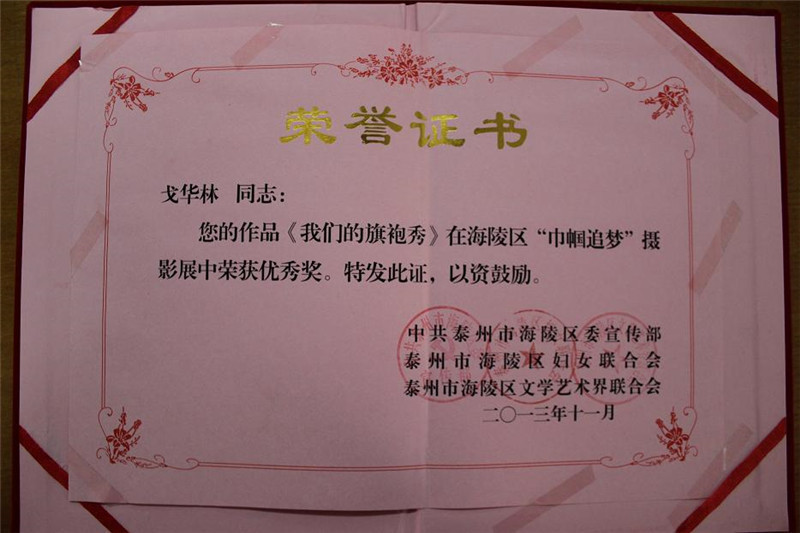 荣誉证书
戈华林 同志：
您的作品《我们的旗袍秀》在海陵区“巾帼追梦”摄
影展中荣获优秀奖。特发此证，以资鼓励。
中共泰州市海陵区委宣传部
泰州市海陵区妇女联合会
泰州市海陵区文学艺术界联合会
二〇一三年十一月